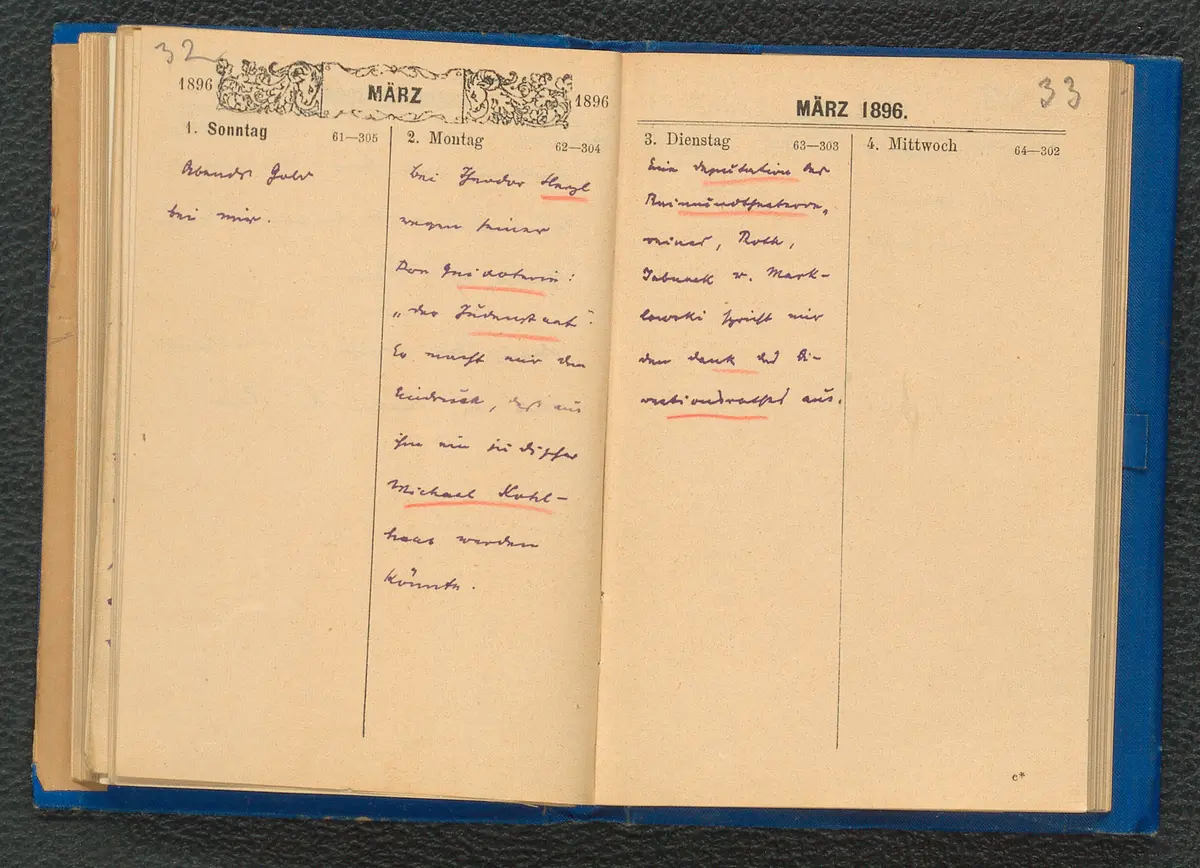 32
1896 MÄRZ 1896
1. Sonntag 61—305
Abends Gold
bei mir.
2. Montag 62—304
Bei Theodor Herzl
wegen seiner
Don Quixoterie:
„der Judenstaat“.
Er macht mir den
Eindruck, daß aus
ihm ein jüdischer
Michael Kohl-
haas werden
könnte.
33
MÄRZ 1896.
3. Dienstag 63—303
Eine Deputation des
Raimundtheaterver-
eines, Roth,
u. Mark-
lowski spricht mir
den Dank des Di-
rectionsrathes aus.
4. Mittwoch 64—302
c*